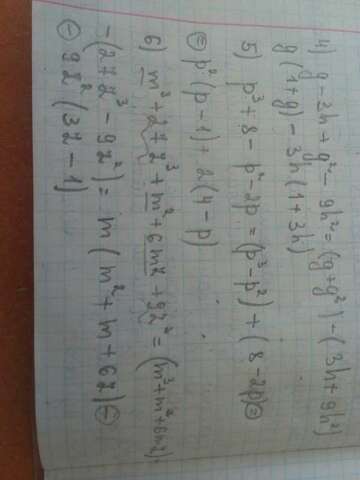 4) g-3h+g²-9h²=(g+g²)-(3h+9h²)
g(1+g)-3h(1+3h)
5) p³+8-p²-2p=(p³-p²)+(8-2p)=
= p²(p-1)+2(4-p)
6) m³+27z³+m²+6mz+9z²=(m³+m²+6mz)-
-(27z³-9z²)=m(m²+m+6z)-
- 9z²(3z-1)